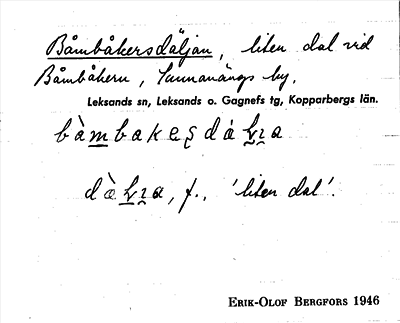 Båmbåkersdäljan, liten dal vid
Båmbåkern, Sunnanängs by.
Leksands sn, Leksands o. Gagnefs tg, Kopparbergs län.
bàmbakesdàlʒɪa
dàlʒɪa, f., 'liten dal'.
ERIK-OLOF BERGFORS 1946